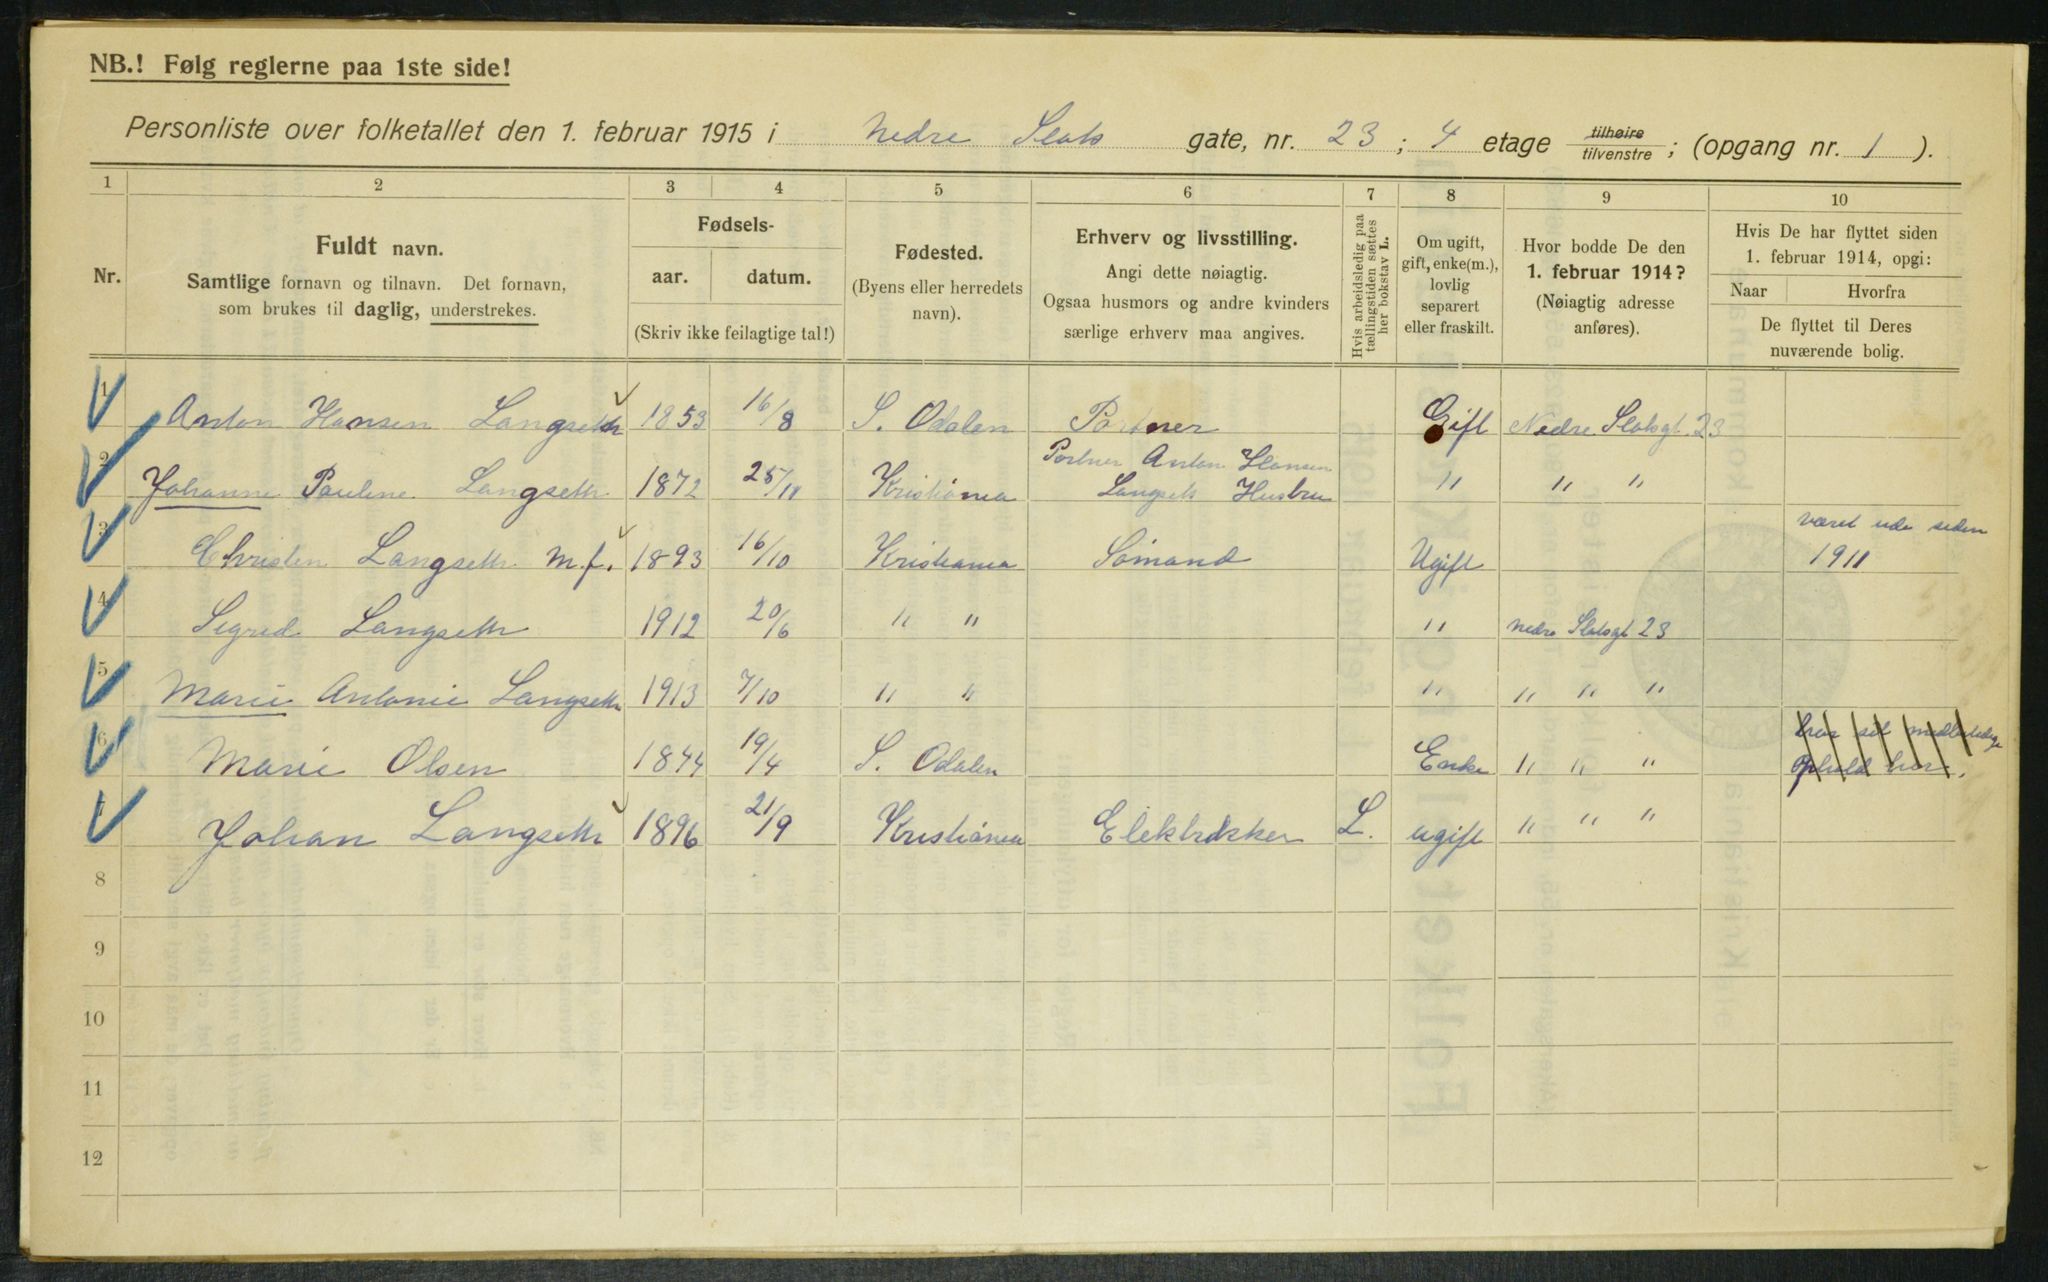 NB.! Følg reglerne paa 1ste side!
Personliste over folketallet den 1. februar 1915 i Nedre Slots gate, nr. 23 ; 4 etage tilhøire tilvenstre ; (opgang nr. 1 ).
1 2 3 4 5 6 7 8 9 10
Nr.
Fuldt navn.
Samtlige fornavn og tilnavn. Det fornavn,
som brukes til daglig, understrekes.
Fødsels-
aar. datum.
(Skriv ikke feilagtige tal!)
Fødested.
(Byens eller herredets
navn).
Erhverv og livsstilling.
Angi dette nøiagtig.
Ogsaa husmors og andre kvinders
særlige erhverv maa angives.
Hvis arbeidsledig paa
tællingstiden sættes
her bokstav L.
Om ugift,
gift, enke(m.),
lovlig
separert
eller fraskilt.
Hvor bodde De den
1. februar 1914?
(Nøiagtig adresse
anføres).
Hvis De har flyttet siden
1. februar 1914, opgi:
Naar Hvorfra
De flyttet til Deres
nuværende bolig.
1 Anton Hansen Langseth 1853 16/8 S. Odalen Portner Gift Nedre Slotsgt. 23
2 Johanne Pauline Langseth 1872 25/11 Kristiania Portner Anton Hansen
Langseth Hustru " " "
3 Christen Langseth m.f. 1893 16/10 Kristiania Sømand Ugift været ude siden
1911
4 Sigrid Langseth 1912 20/6 " " " nedre Slotsgt 23
5 Marie Antonie Langseth 1913 7/10 " " " " " "
6 Marie Olsen 1844 19/4 S. Odalen Enke " " " har sit midlertidige
ophold her.
7 Johan Langseth 1896 21/9 Kristiania Elektrikker L. ugift " " "
8
9
10
11
12